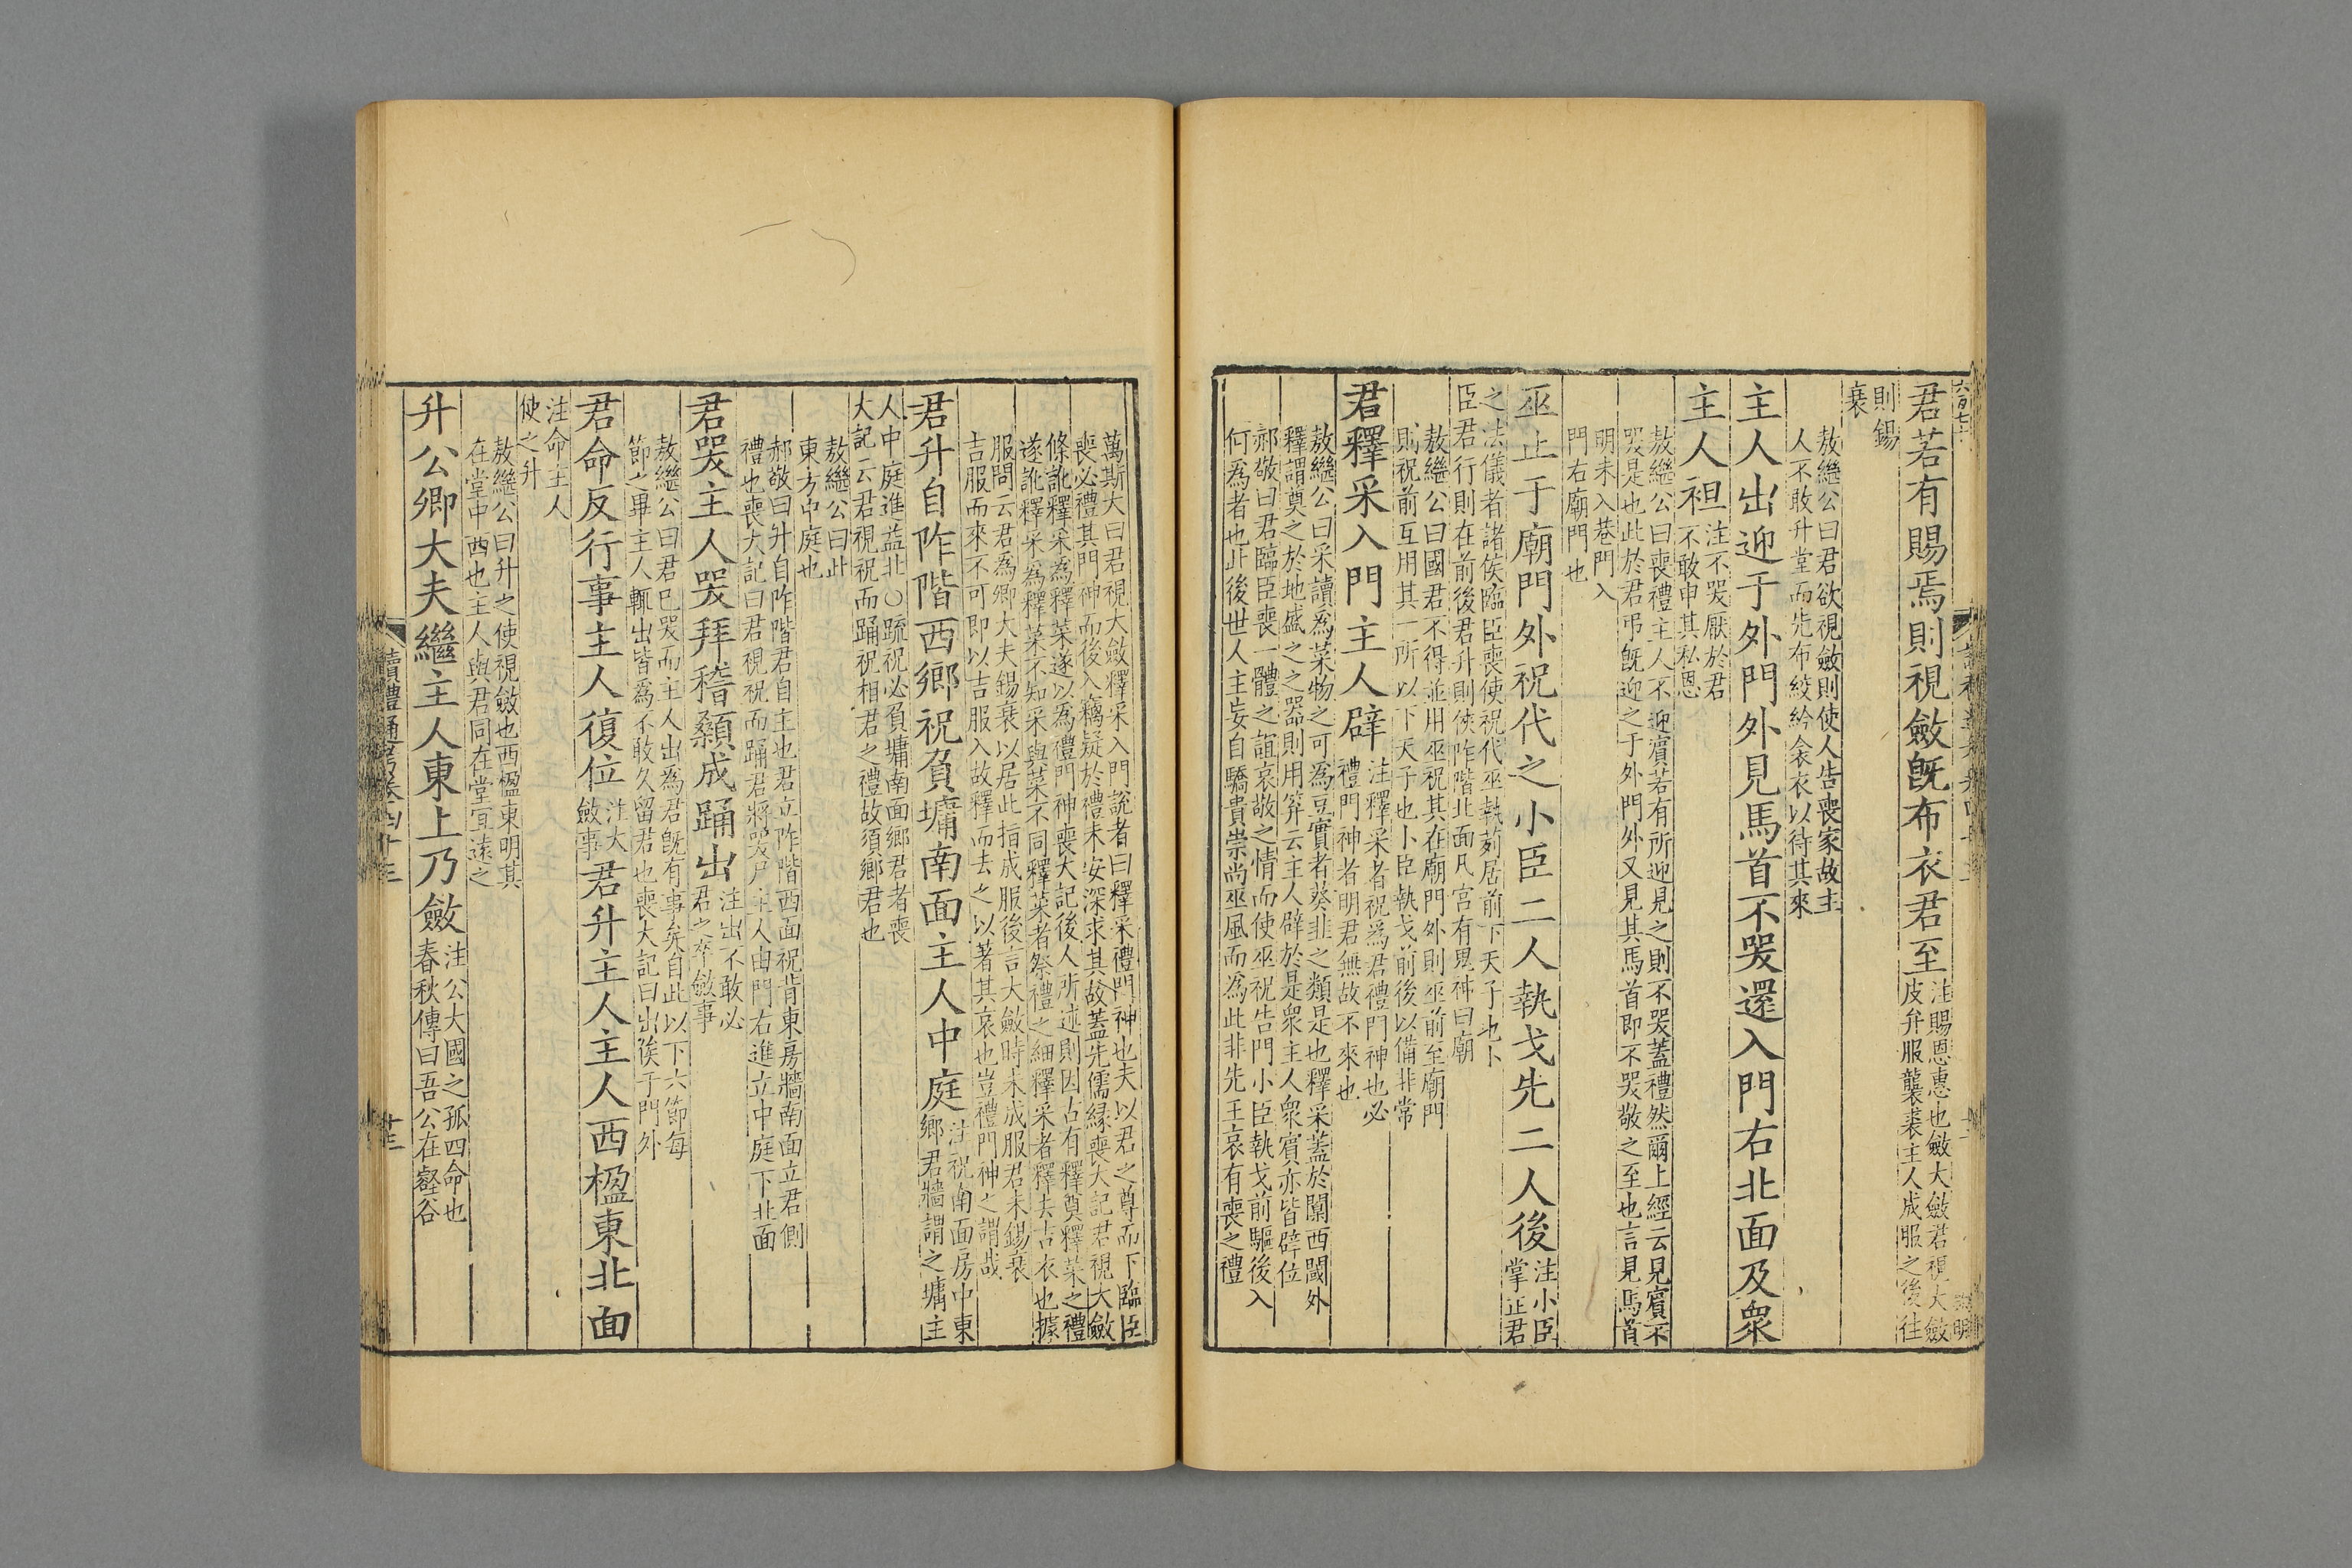 君若有賜焉則視斂旣布衣君至
注賜恩惠也斂大斂君視大斂
皮弁服襲裘主人成服之後往
則錫
衰
敖繼公曰君欲視斂則使人告喪家故主
人不敢升堂而先布絞紟衾衣以待其來
主人出迎于外門外見馬首不哭還入門右北面及衆
主人袒
注不哭厭於君
不敢申其私恩
敖繼公曰喪禮主人不迎賓若有所迎見之則不哭蓋禮然爾上經云見賓不
哭是也此於君弔旣迎之于外門外又見其馬首即不哭敬之至也言見馬首
明未入巷門入
門右廟門也
巫止于廟門外祝代之小臣二人執戈先二人後
注小臣
掌正君
之法儀者諸侯臨臣喪使祝代巫執茢居前下天子也小
臣君行則在前後君升則俠阼階北面凡宮有鬼神曰廟
敖繼公曰國君不得並用巫祝其在廟門外則巫前至廟門
則祝前互用其一所以下天子也小臣執戈前後以備非常
君釋采入門主人辟
注釋采者祝爲君禮門神也必
禮門神者明君無故不來也
敖繼公曰采讀爲菜物之可爲豆實者葵韭之類是也釋采蓋於闑西閾外
釋謂奠之於地盛之之器則用筭云主人辟於是衆主人衆賓亦皆辟位
郝敬曰君臨臣喪一體之誼哀敬之情而使巫祝告門小臣執戈前驅後入
何爲者也此後世人主妄自驕貴崇尚巫風而爲此非先王哀有喪之禮
萬斯大曰君視大斂釋采入門說者曰釋采禮門神也夫以君之尊而下臨臣
喪必禮其門神而後入竊疑於禮未安深求其故蓋先儒緣喪大記君視大斂
條訛釋采爲釋菜遂以爲禮門神喪大記後人所述則因古有釋奠釋菜之禮
遂訛釋采爲釋菜不知采與菜不同釋菜者祭禮之細釋采者釋去吉衣也據
服問云君爲卿大夫錫衰以居此指成服後言大斂時未成服君未錫衰
吉服而來不可即以吉服入故釋而去之以著其哀也豈禮門神之謂哉
君升自阼階西鄉祝負墉南面主人中庭
注祝南面房中東
鄉君牆謂之墉主
人中庭進益北○疏祝必負墉南面鄉君者喪
大記云君視祝而踊祝相君之禮故須鄉君也
敖繼公曰此
東方中庭也
郝敬曰升自阼階君自主也君立阼階西面祝背東房牆南面立君側
禮也喪大記曰君視祝而踊君將哭尸主人由門右進立中庭下北面
君哭主人哭拜稽顙成踊出
注出不敢必
君之卒斂事
敖繼公曰君巳哭而主人出爲君旣有事矣自此以下六節每
節之畢主人輒出皆爲不敢久留君也喪大記曰出俟于門外
君命反行事主人復位
注大
斂事
君升主人主人西楹東北面
注命主人
使之升
敖繼公曰升之使視斂也西楹東明其
在堂中西也主人與君同在堂宜遠之
升公卿大夫繼主人東上乃斂
注公大國之孤四命也
春秋傳曰吾公在壑谷
讀禮通考卷四十三